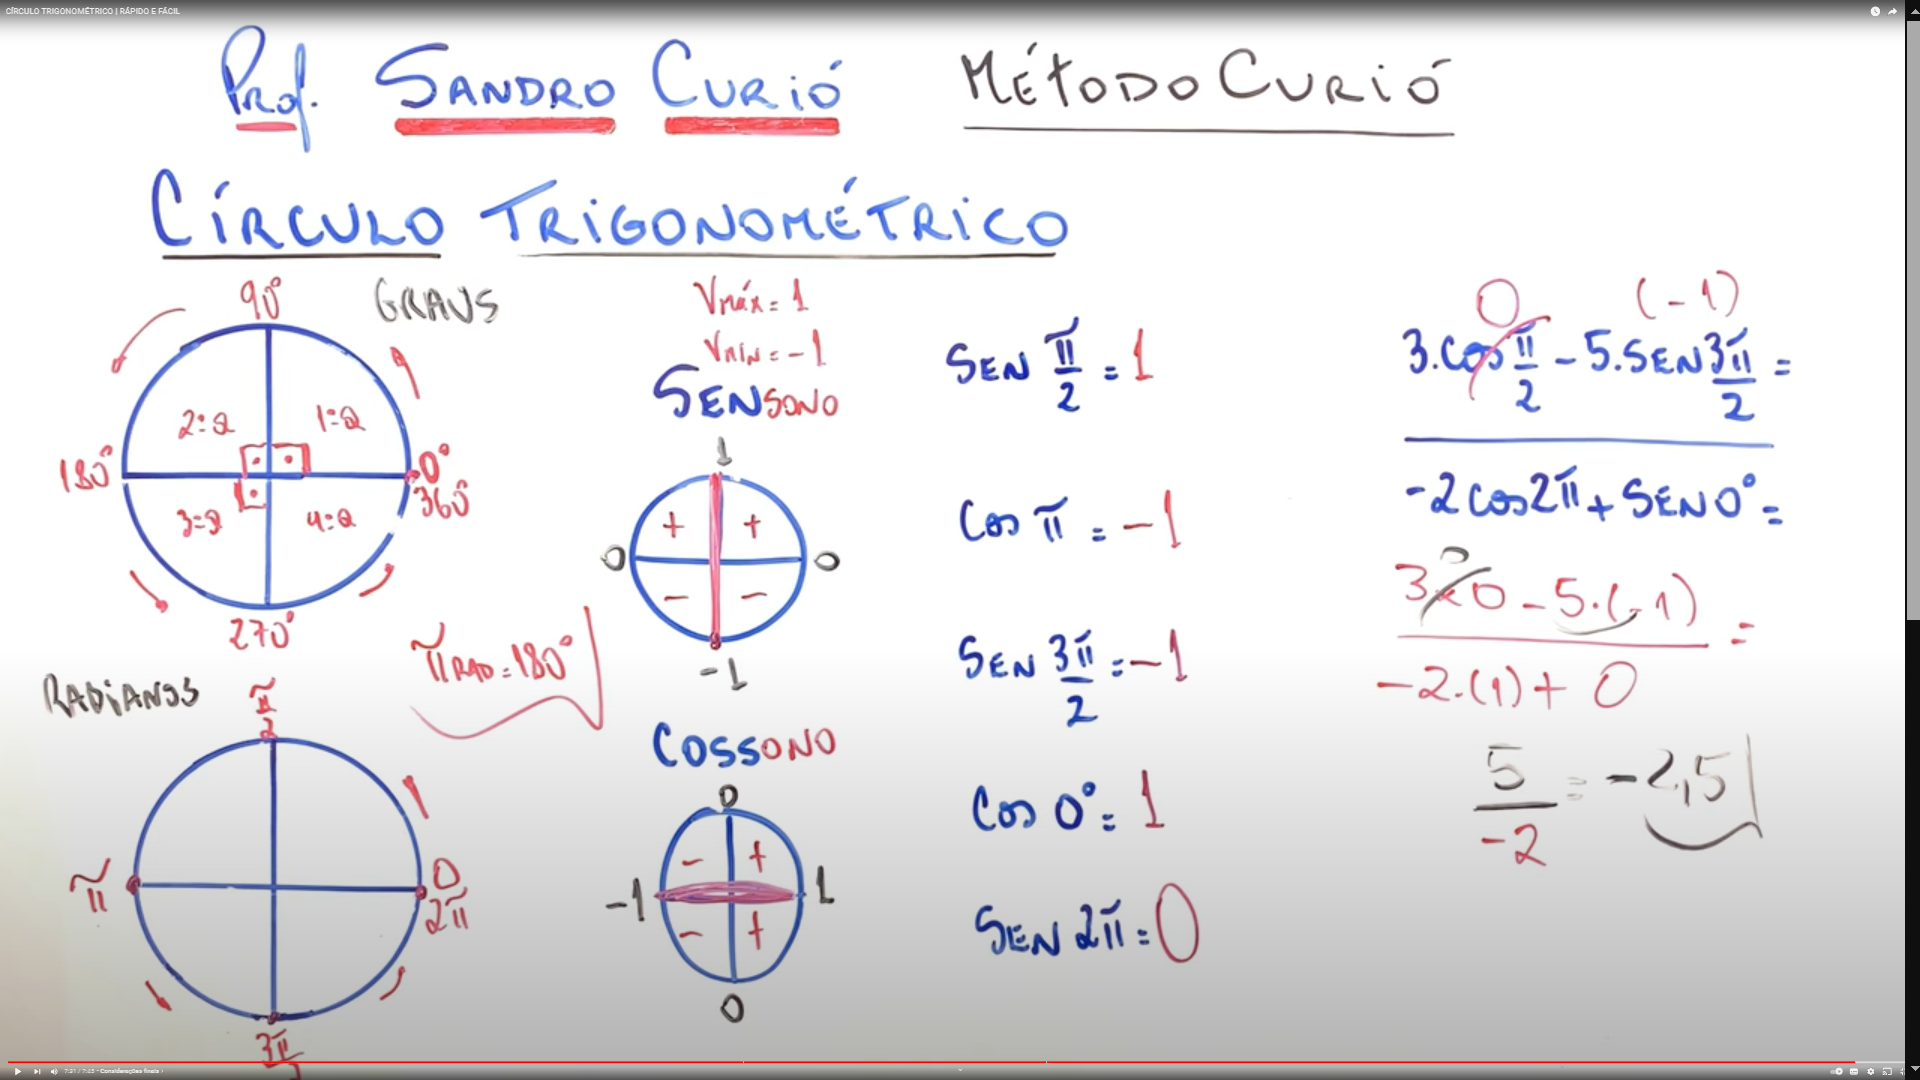 CÍRCULO TRIGONOMÉTRICO | RÁPIDO E FÁCIL
Prof. SANDRO CURIÓ MÉTODO CURIÓ
CÍRCULO TRIGONOMÉTRICO
GRAUS
90°
2º Q 1º Q
180° 0°
360°
3º Q 4º Q
270°
π RAD = 180°
RADIANOS
π/2
π 0
2π
3π/2
Vmáx = 1
Vmín = -1
SENSONO
1
+ +
0 0
- -
-1
COSSONO
0
- +
-1 1
- +
0
SEN π/2 = 1
COS π = -1
SEN 3π/2 = -1
COS 0° = 1
SEN 2π = 0
0 (-1)
3.COS π/2 - 5.SEN 3π/2 =
-2COS2π + SEN0° =
0
3x0 - 5.(-1) =
-2.(1) + 0
5/-2 = -2,5
7:31 / 7:45 • Considerações finais ›